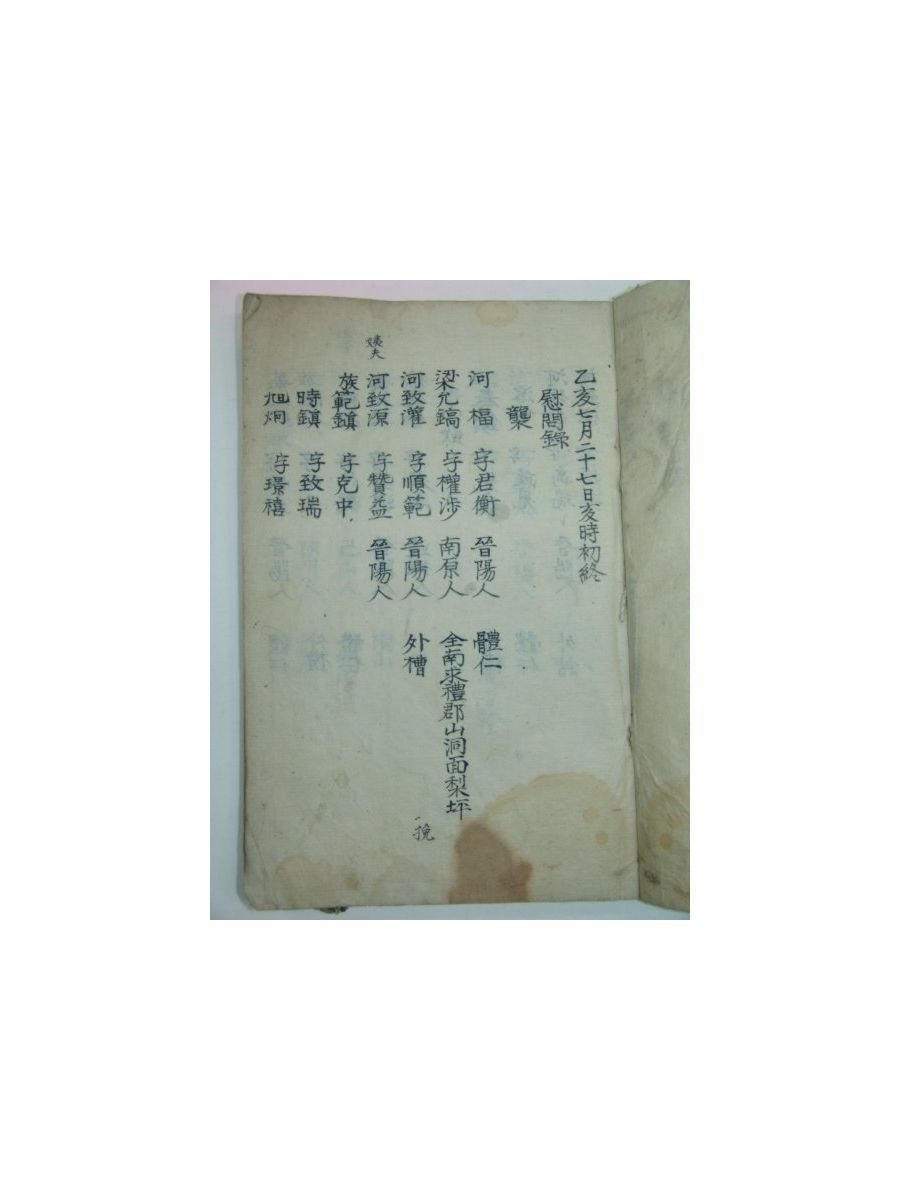 乙亥七月二十七日亥時初終
慰問錄
襲
河楅 字君衡 晉陽人 體仁
梁允鎬 字權涉 南原人 全南求禮郡山洞面梨坪
河致瀖 字順範 晉陽人 外槽 挽
姨夫
河致源 字贊益 晉陽人
族範鎭 字克中
時鎭 字致瑞
旭炯 字璟禧